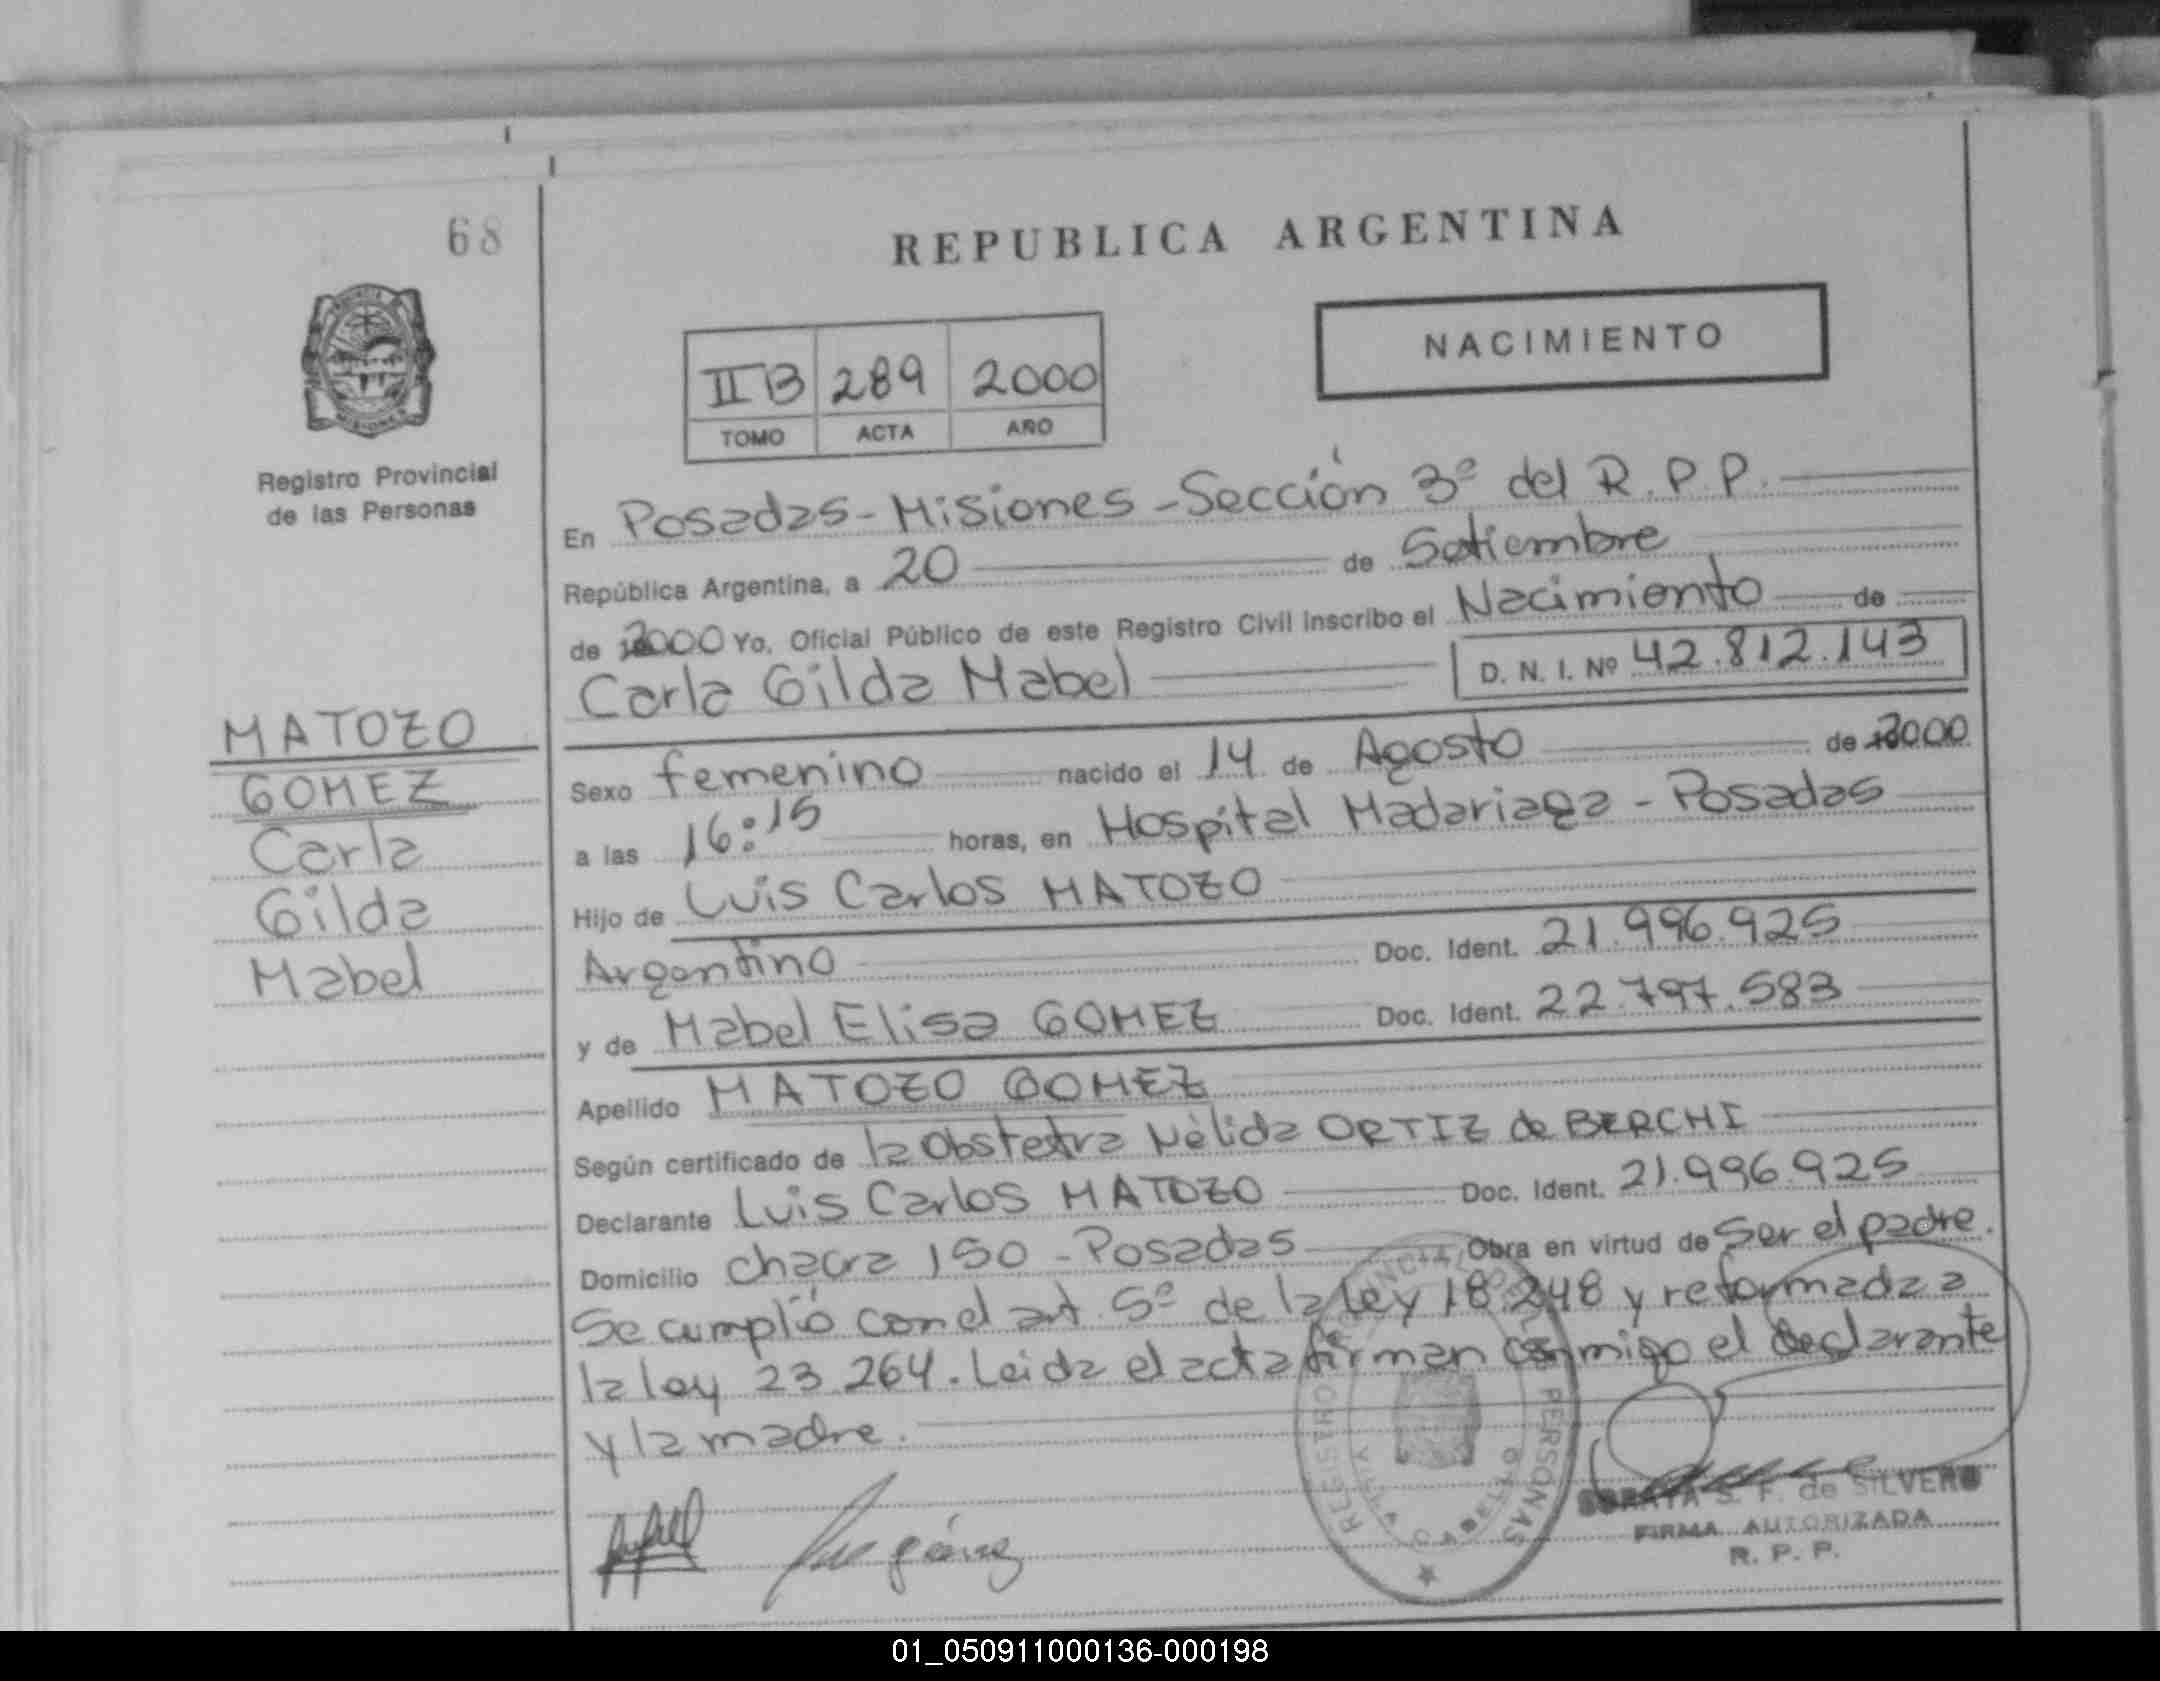 68
REPUBLICA ARGENTINA
NACIMIENTO
IIB 289 2000
TOMO ACTA AÑO
Registro Provincial
de las Personas
En Posadas - Misiones - Sección 3º del R.P.P.
República Argentina, a 20 de Setiembre
de 2000 Yo, Oficial Público de este Registro Civil inscribo el Nacimiento de
Carla Gilda Mabel D. N. I. Nº 42.812.143
MATOZO
GOMEZ
Carla
Gilda
Mabel
Sexo femenino nacido el 14 de Agosto de 2000
a las 16:15 horas, en Hospital Madariaga - Posadas
Hijo de Luis Carlos MATOZO
Argentino Doc. Ident. 21.996.925
y de Mabel Elisa GOMEZ Doc. Ident. 22.797.583
Apellido MATOZO GOMEZ
Según certificado de la Obstetra Nélida ORTIZ de BERCHI
Declarante Luis Carlos MATOZO Doc. Ident. 21.996.925
Domicilio chacra 150 - Posadas Obra en virtud de Ser el padre.
Se cumplió con el art. 5º de la ley 18.248 y reformada a
la ley 23.264. Leida el acta firman conmigo el declarante
y la madre.
REGISTRO PROVINCIAL PERSONAS
S. F. de SILVERO
FIRMA AUTORIZADA
R. P. P.
01_050911000136-000198